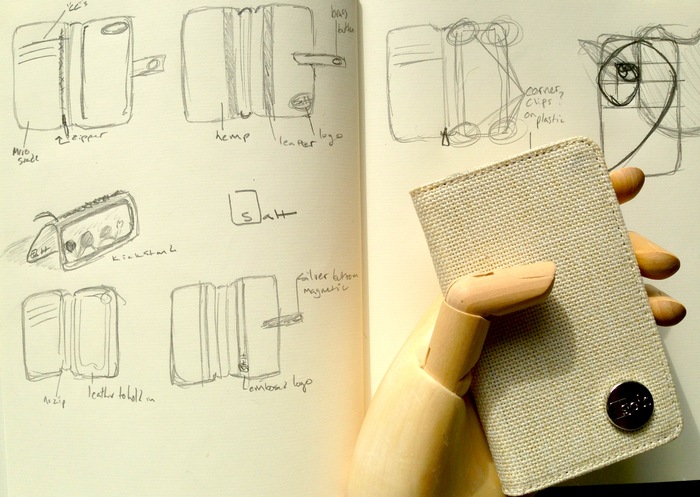 brass
button
zipper
hemp
leather
logo
corner
clips
on plastic
Kickstand
Salt
silver button
magnetic
no zip
leather to hold in
emboss logo